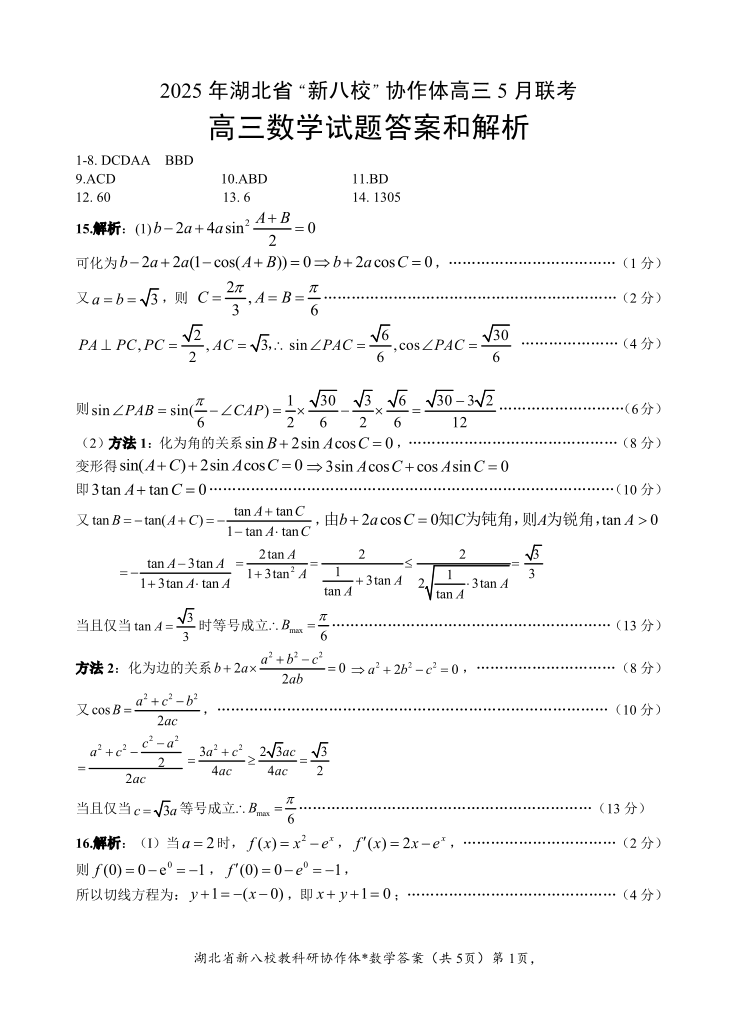 2025 年湖北省“新八校”协作体高三 5 月联考
高三数学试题答案和解析
1-8. DCDAA BBD
9.ACD 10.ABD 11.BD
12. 60 13. 6 14. 1305
15.解析：(1) b − 2a + 4a sin² (A+B)/2 = 0
可化为 b − 2a + 2a(1 − cos(A + B)) = 0 ⇒ b + 2a cos C = 0，……………………………（1 分）
又 a = b = √3，则 C = 2π/3, A = B = π/6 ……………………………（2 分）
PA ⊥ PC, PC = √2/2, AC = √3，∴ sin∠PAC = √6/6, cos∠PAC = √30/6 …………………（4 分）
则 sin∠PAB = sin(π/6 − ∠CAP) = 1/2 × √30/6 − √3/2 × √6/6 = (√30 − 3√2)/12 ……………………（6 分）
（2）方法 1：化为角的关系 sin B + 2sin A cos C = 0，……………………………（8 分）
变形得 sin(A + C) + 2sin A cos C = 0 ⇒ 3sin A cos C + cos A sin C = 0
即 3tan A + tan C = 0 ……………………………（10 分）
又 tan B = −tan(A + C) = −(tan A + tan C)/(1 − tan A· tan C)，由b + 2a cos C = 0知C为钝角，则A为锐角，tan A > 0
= −(tan A − 3tan A)/(1 + 3tan A· tan A) = 2tan A/(1 + 3tan² A) = 2/(1/tan A + 3tan A) ≤ 2/(2√(1/tan A ·3tan A)) = √3/3
当且仅当 tan A = √3/3 时等号成立∴ Bmax = π/6 ……………………………（13 分）
方法 2：化为边的关系 b + 2a × (a² + b² − c²)/2ab = 0 ⇒ a² + 2b² − c² = 0，……………………（8 分）
又 cos B = (a² + c² − b²)/2ac，……………………………（10 分）
= (a² + c² − (c² − a²)/2)/2ac = (3a² + c²)/4ac ≥ 2√3ac/4ac = √3/2
当且仅当 c = √3a 等号成立∴ Bmax = π/6 ……………………………（13 分）
16.解析：（I）当 a = 2 时，f(x) = x² − eˣ，f′(x) = 2x − eˣ，……………………………（2 分）
则 f(0) = 0 − e⁰ = −1，f′(0) = 0 − e⁰ = −1，
所以切线方程为：y + 1 = −(x − 0)，即 x + y + 1 = 0；……………………………（4 分）
湖北省新八校教科研协作体*数学答案（共 5页）第 1页，